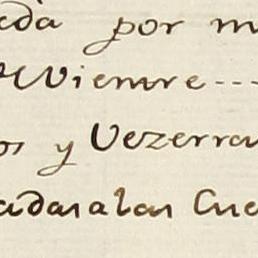 eda por m
Vientre ---
os y Vezerra
adas a las Cue